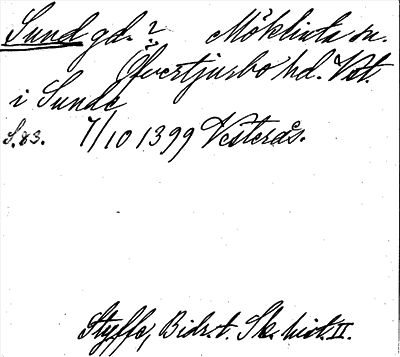 Sund gd. ? Möklinta sn.
Öfvertjurbo hd. Vst.
i Sunde
S. 83. 7/10 1399 Vesterås.
Styffe, Bidr. t. Sk. hist. II.